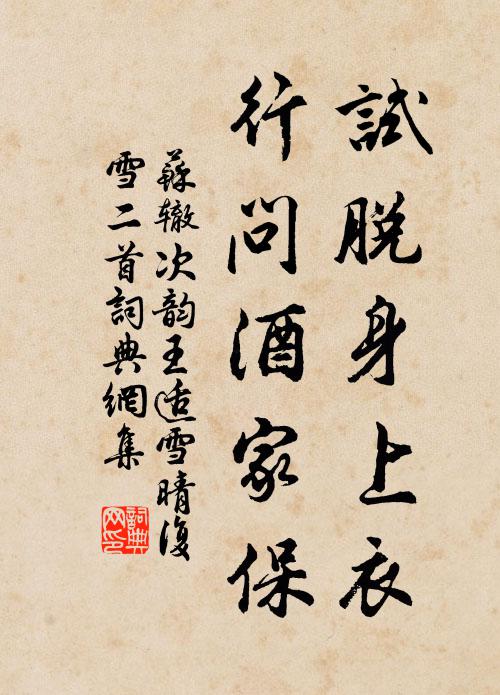 試脫身上衣
行問酒家保
蘇辙次韵王适雪晴復
雪二首詞典網集
詞典
网印